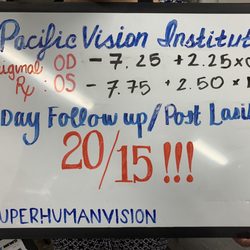 Pacific Vision Institut
iginal OD - 7.25 +2.25 x
Rx : OS - 7.75 + 2.50 x
Day Follow up / Post Lasi
20/15 !!!
UPERHUMANVISION